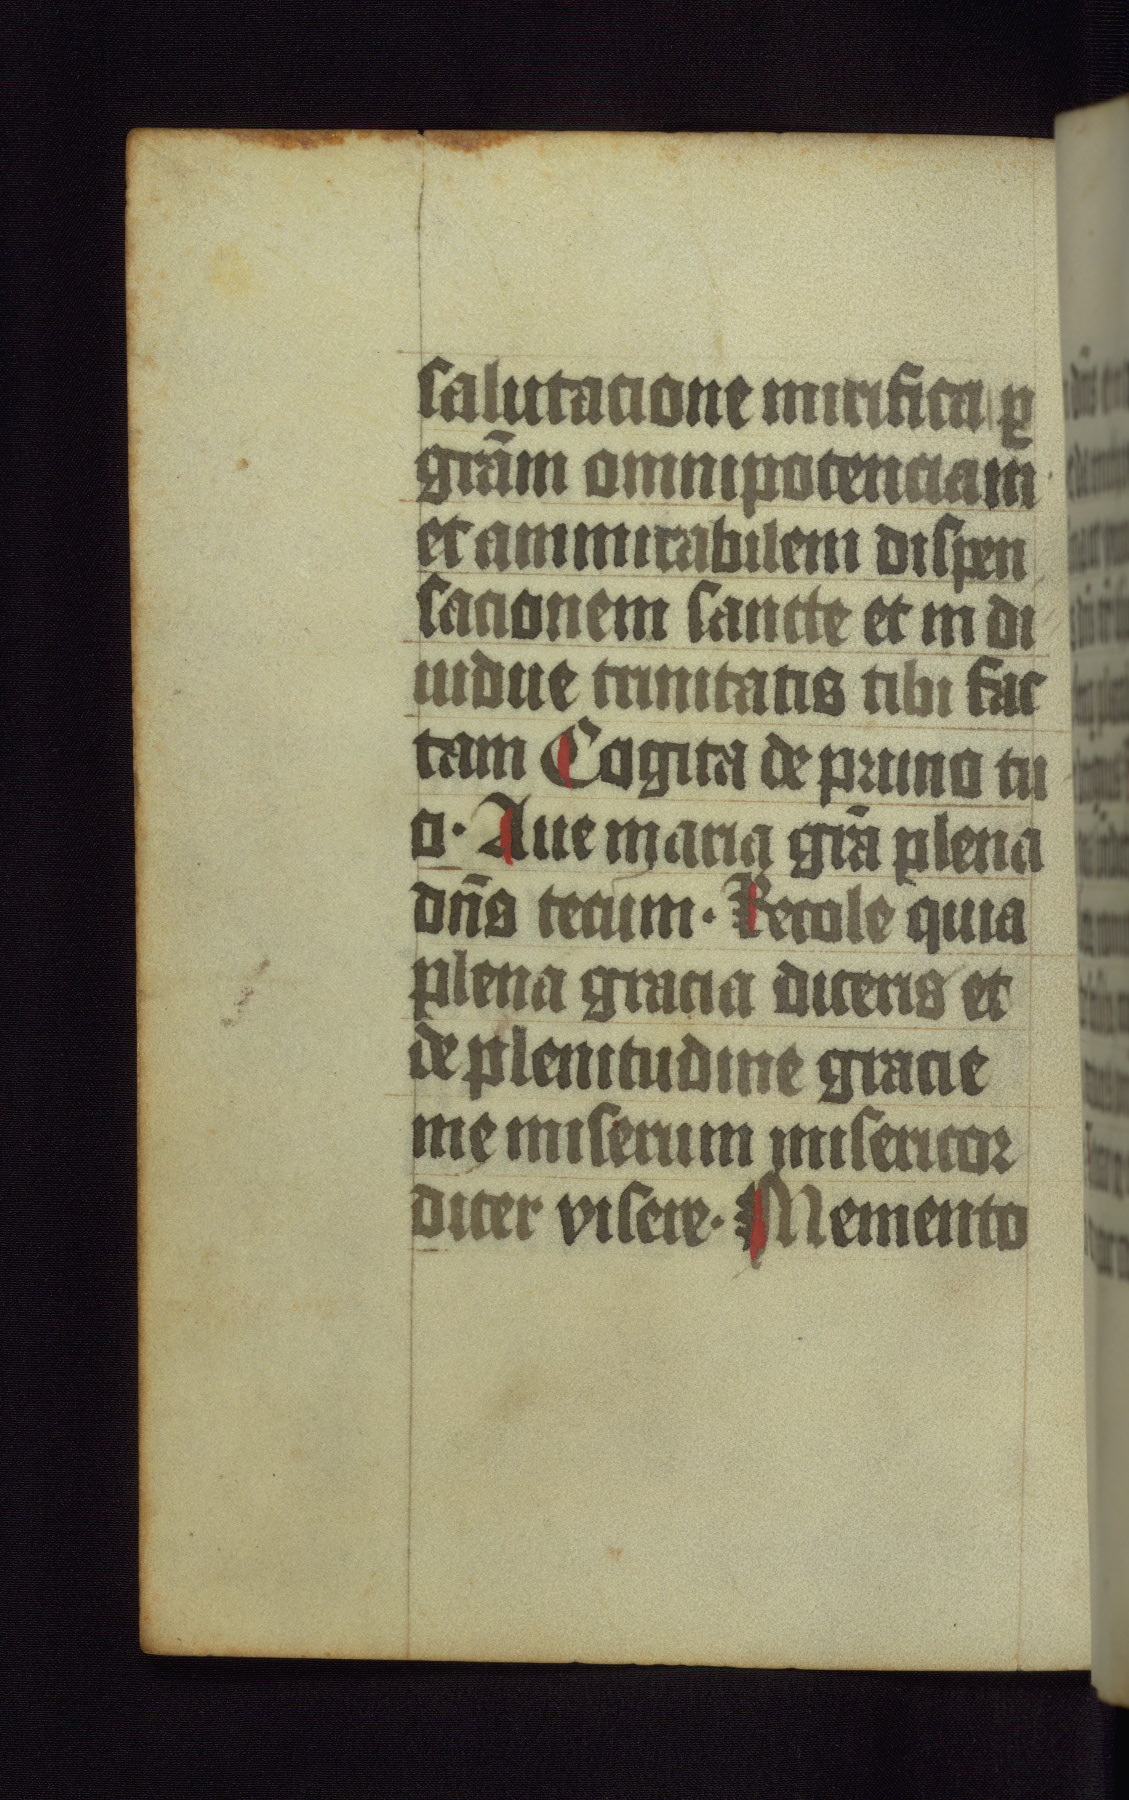 salutacione mirifica ꝑ
grām omnipotenciam
et ammirabilem dispen
sacionem sancte et in di
uidue trinitatis tibi fac
tam Cogita de primo tu
o· Aue maria grā plena
dn̄s tecum· Recole quia
plena gracia diceris et
de plenitudine gracie
me miserum misericor
diter visere· Memento